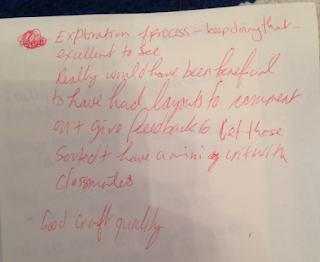 Exploration of process - keep doing that -
excellent to see
Really would have been beneficial
to have had layouts to comment
on + give feedback to. Get those
sorted + have a mini crit with
classmates
- Good craft quality